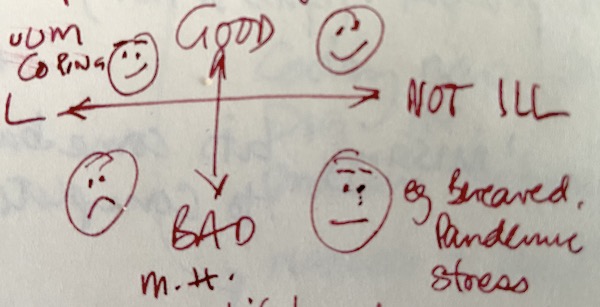 GOOD
COPING
L
NOT ILL
BAD
m.H.
eg Bereaved,
Pandemic
stress